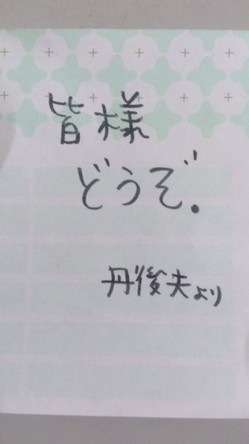 皆様
どうぞ.
丹後夫より